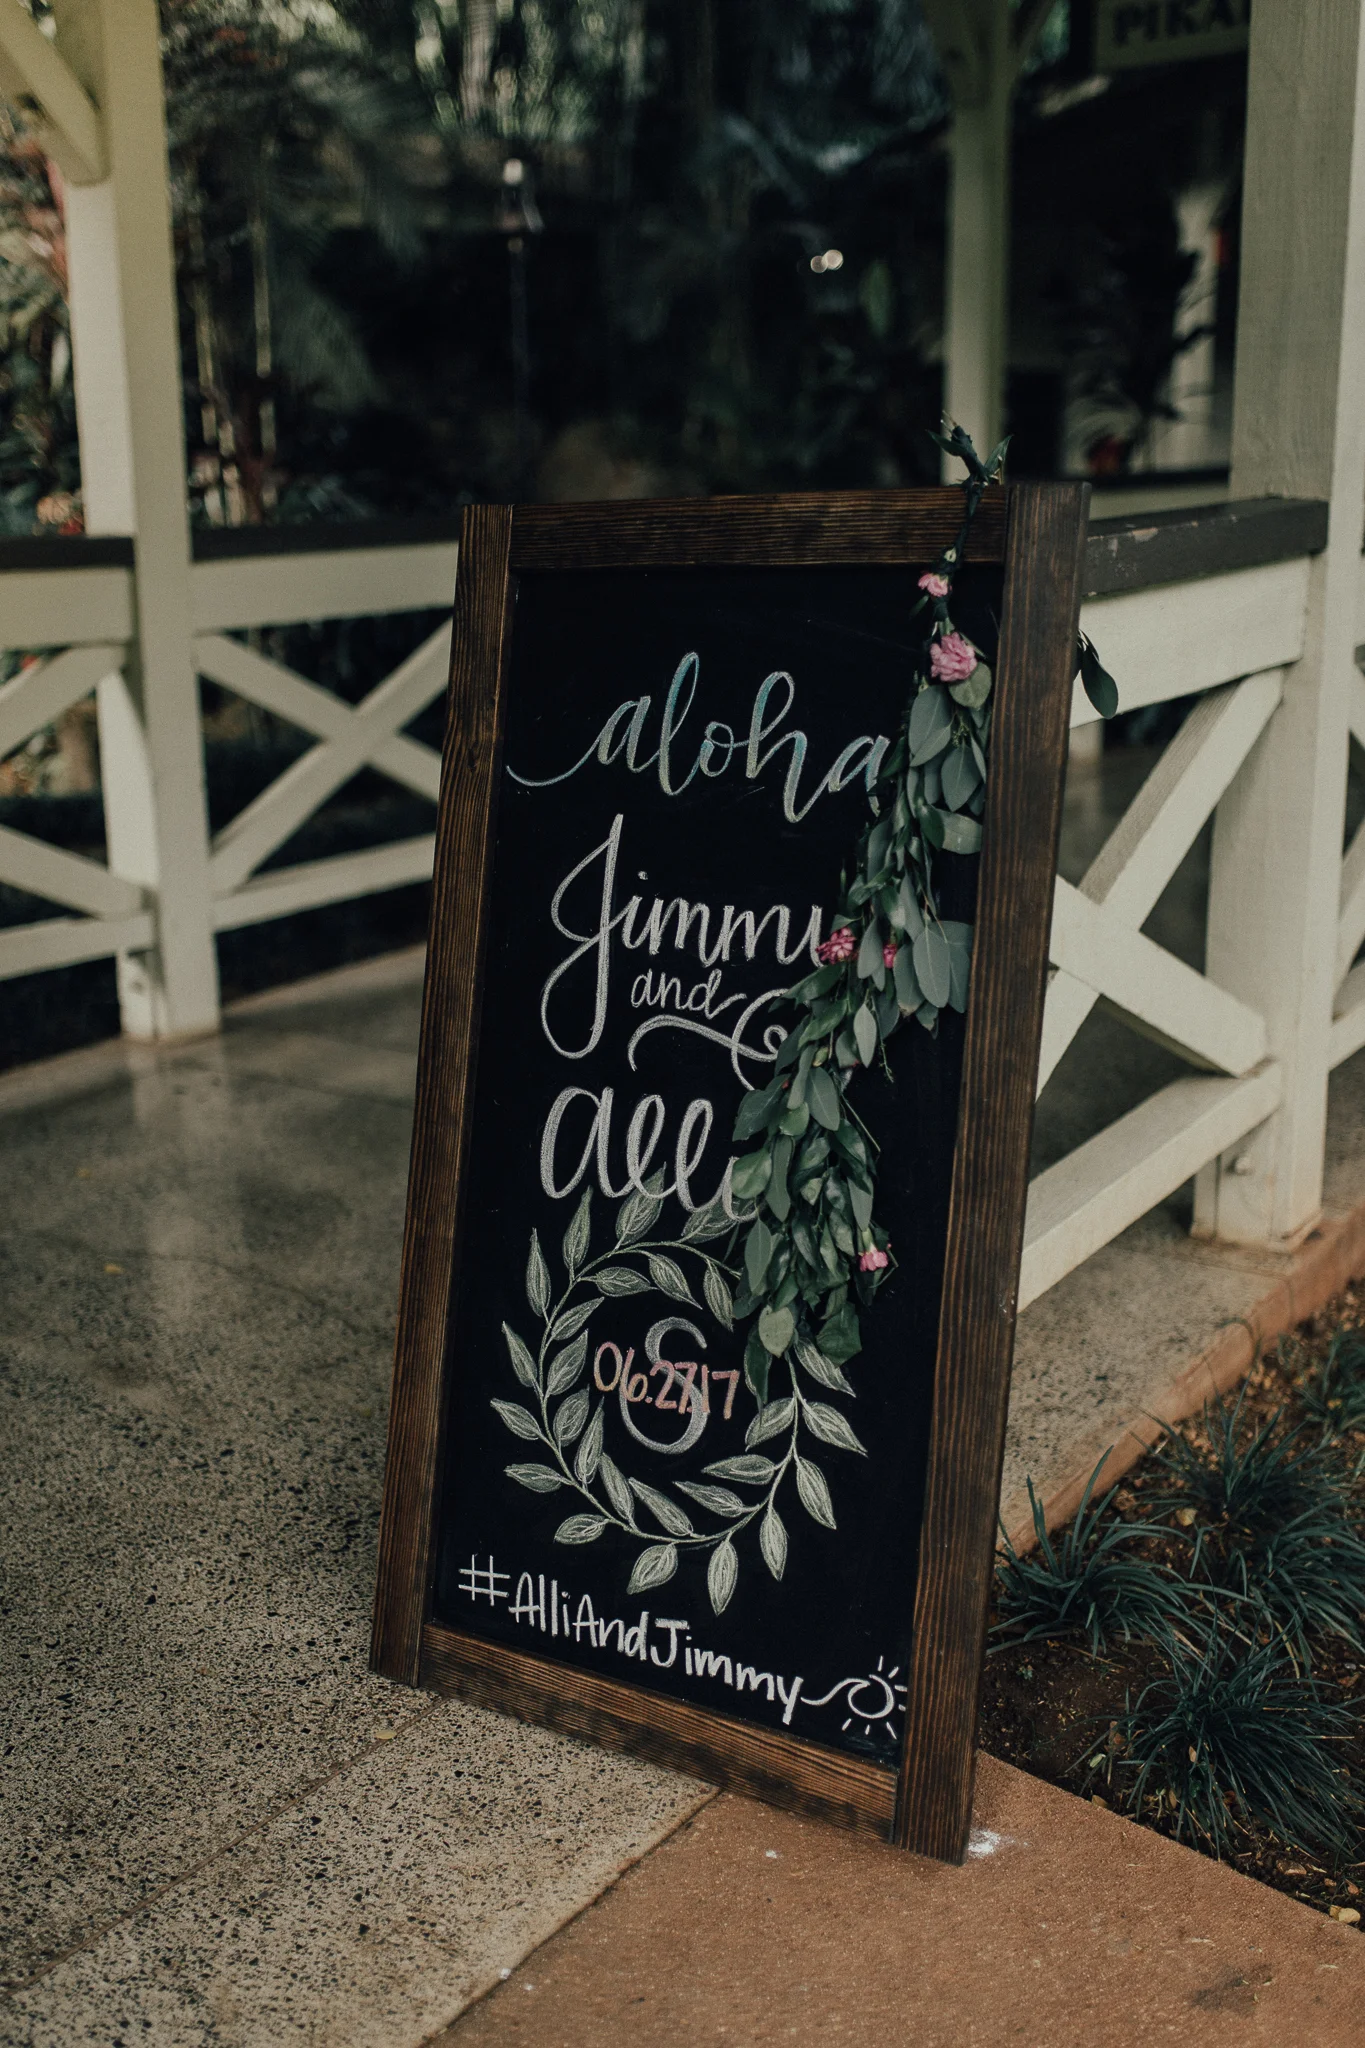 PIKA
aloha
Jimmy
and
alli
S
06.27.17
#AlliAndJimmy